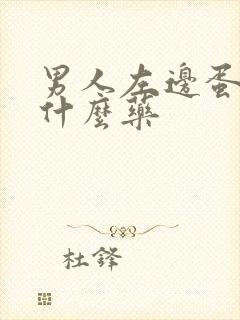 男人左邊蛋
什麼藥
杜鋒